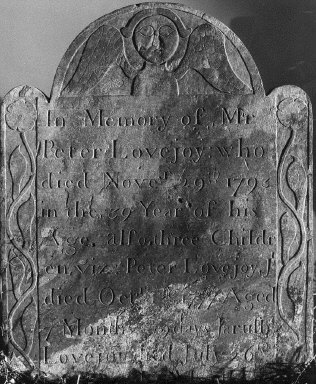 In Memory of Mr
Peter Lovejoy, who
died Nove.r 29.th 179
in the 39 Year of his
Age, alſo three Childr
en, viz. Peter Lovejoy, J
died Oct.r Aged
7 Month days
Lovejoy died July 26